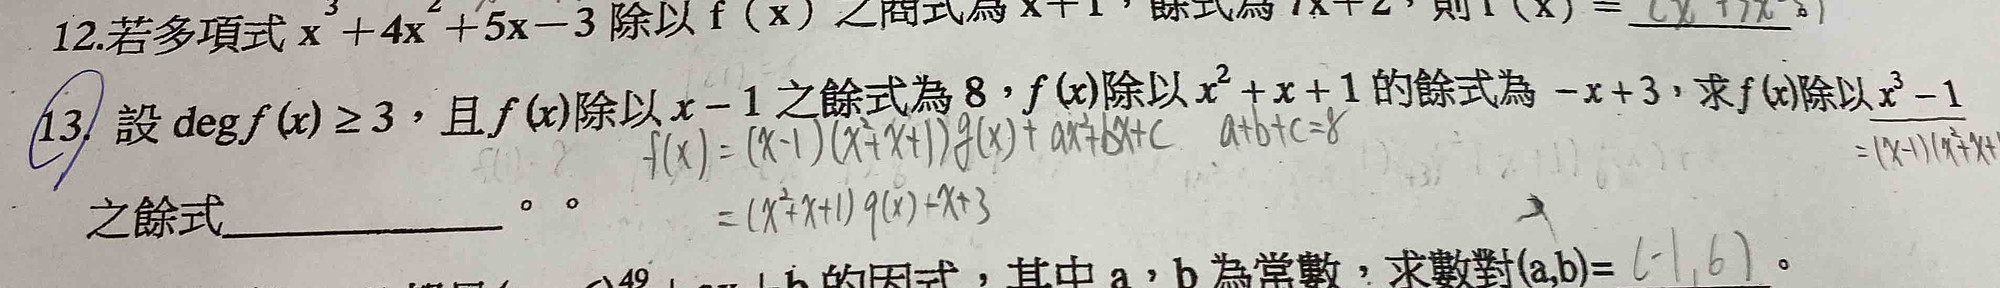 12.若多項式 x³+4x²+5x-3 除以 f(x) 之商式為 x+1,餘式為 7x+2,則 f(x) =
13. 設 deg f(x) ≥ 3,且 f(x)除以 x-1 之餘式為 8,f(x)除以 x²+x+1 的餘式為 -x+3,求 f(x)除以 x³-1
f(x) = (x-1)(x²+x+1)g(x)+ax²+bx+c a+b+c=8
=(x-1)(x²+x+1
之餘式____________。。
=(x²+x+1)q(x)-x+3
49 的因式,其中 a,b 為常數,求數對(a,b)= (-1,6)。